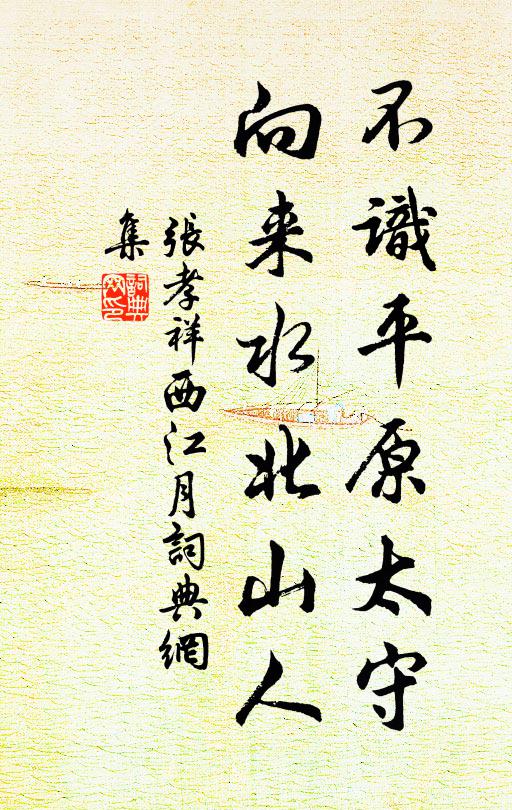 不識平原太守
向来水北山人
張孝祥西江月詞典網
集
詞典網印